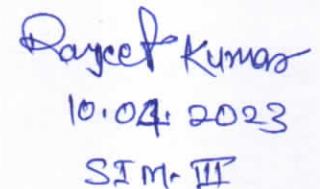 Rajeet Kumar
10.04.2023
SIM-III